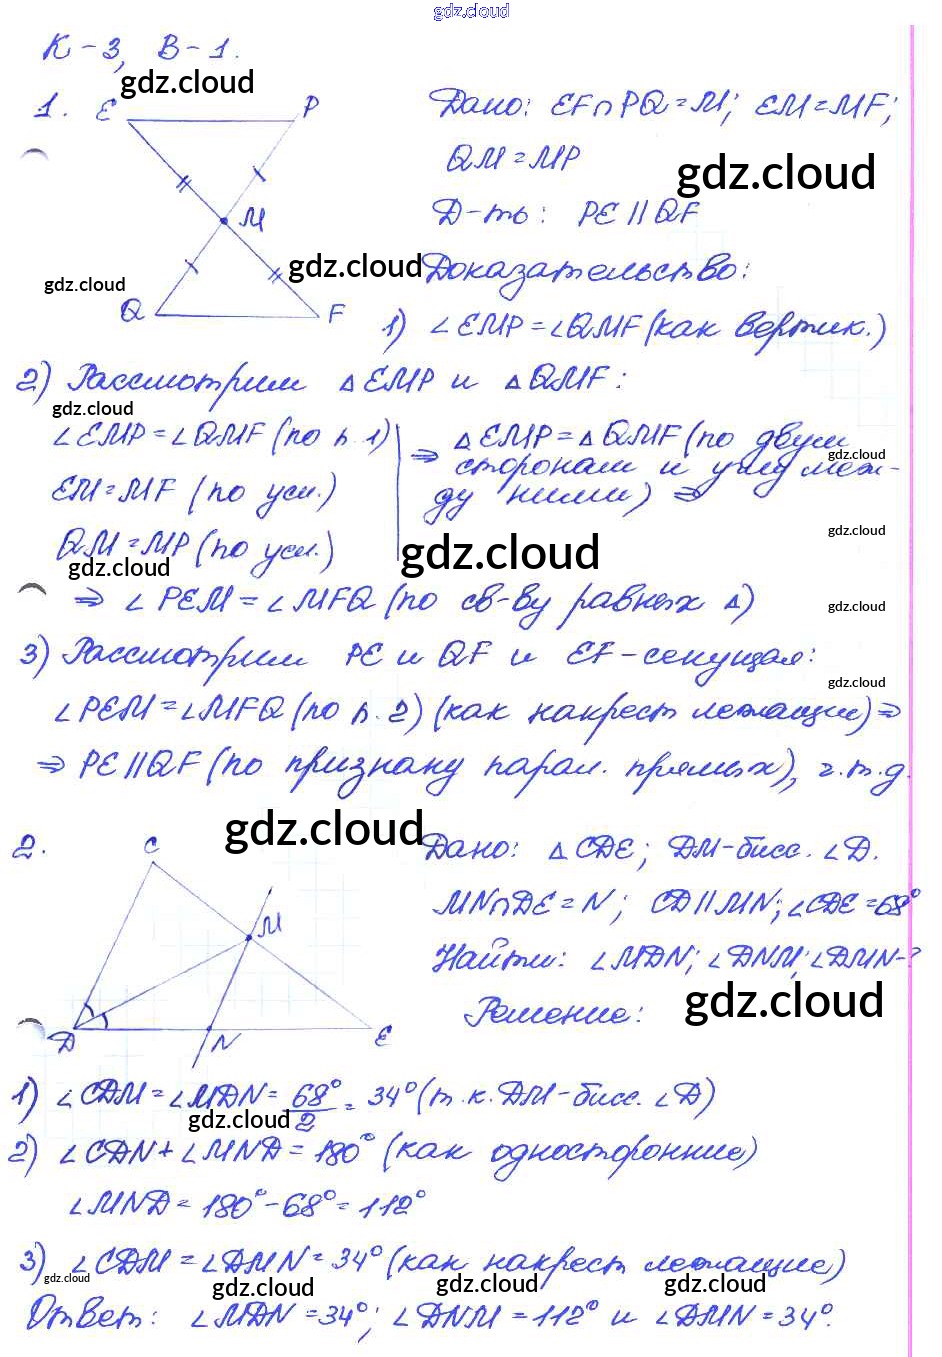 gdz.cloud
К-3, В-1.
gdz.cloud
1. E P Дано: EF∩PQ=M; EM=MF;
QM=MP
gdz.cloud
Д-ть: PE||QF
M
gdz.cloud gdz.cloud Доказательство:
Q F 1) ∠EMP=∠QMF (как вертик.)
2) Рассмотрим △EMP и △QMF:
gdz.cloud
∠EMP=∠QMF (по п.1) ⇒ △EMP=△QMF (по двум
gdz.cloud
сторонам и углу меж-
EM=MF (по усл.) ду ними) ⇒
gdz.cloud
QM=MP (по усл.) gdz.cloud
gdz.cloud
⇒ ∠PEM=∠MFQ (по св-ву равных △)
gdz.cloud
3) Рассмотрим PE и QF и EF-секущая:
gdz.cloud
∠PEM=∠MFQ (по п.2) (как накрест лежащие) ⇒
⇒ PE||QF (по признаку парал. прямых), ч.т.д.
gdz.cloud
2. C Дано: △CDE; DM-бисс. ∠D.
MN∩DE=N; CD||MN; ∠CDE=68°
M
Найти: ∠MDN; ∠DNM; ∠DMN-?
gdz.cloud
Решение:
D N E
1) ∠CDM=∠MDN=68°/2=34° (т.к. DM-бисс. ∠D)
gdz.cloud
2) ∠CDN+∠MND=180° (как односторонние)
∠MND=180°-68°=112°
3) ∠CDM=∠DMN=34° (как накрест лежащие)
gdz.cloud gdz.cloud gdz.cloud gdz.cloud
Ответ: ∠MDN=34°; ∠DNM=112° и ∠DMN=34°.